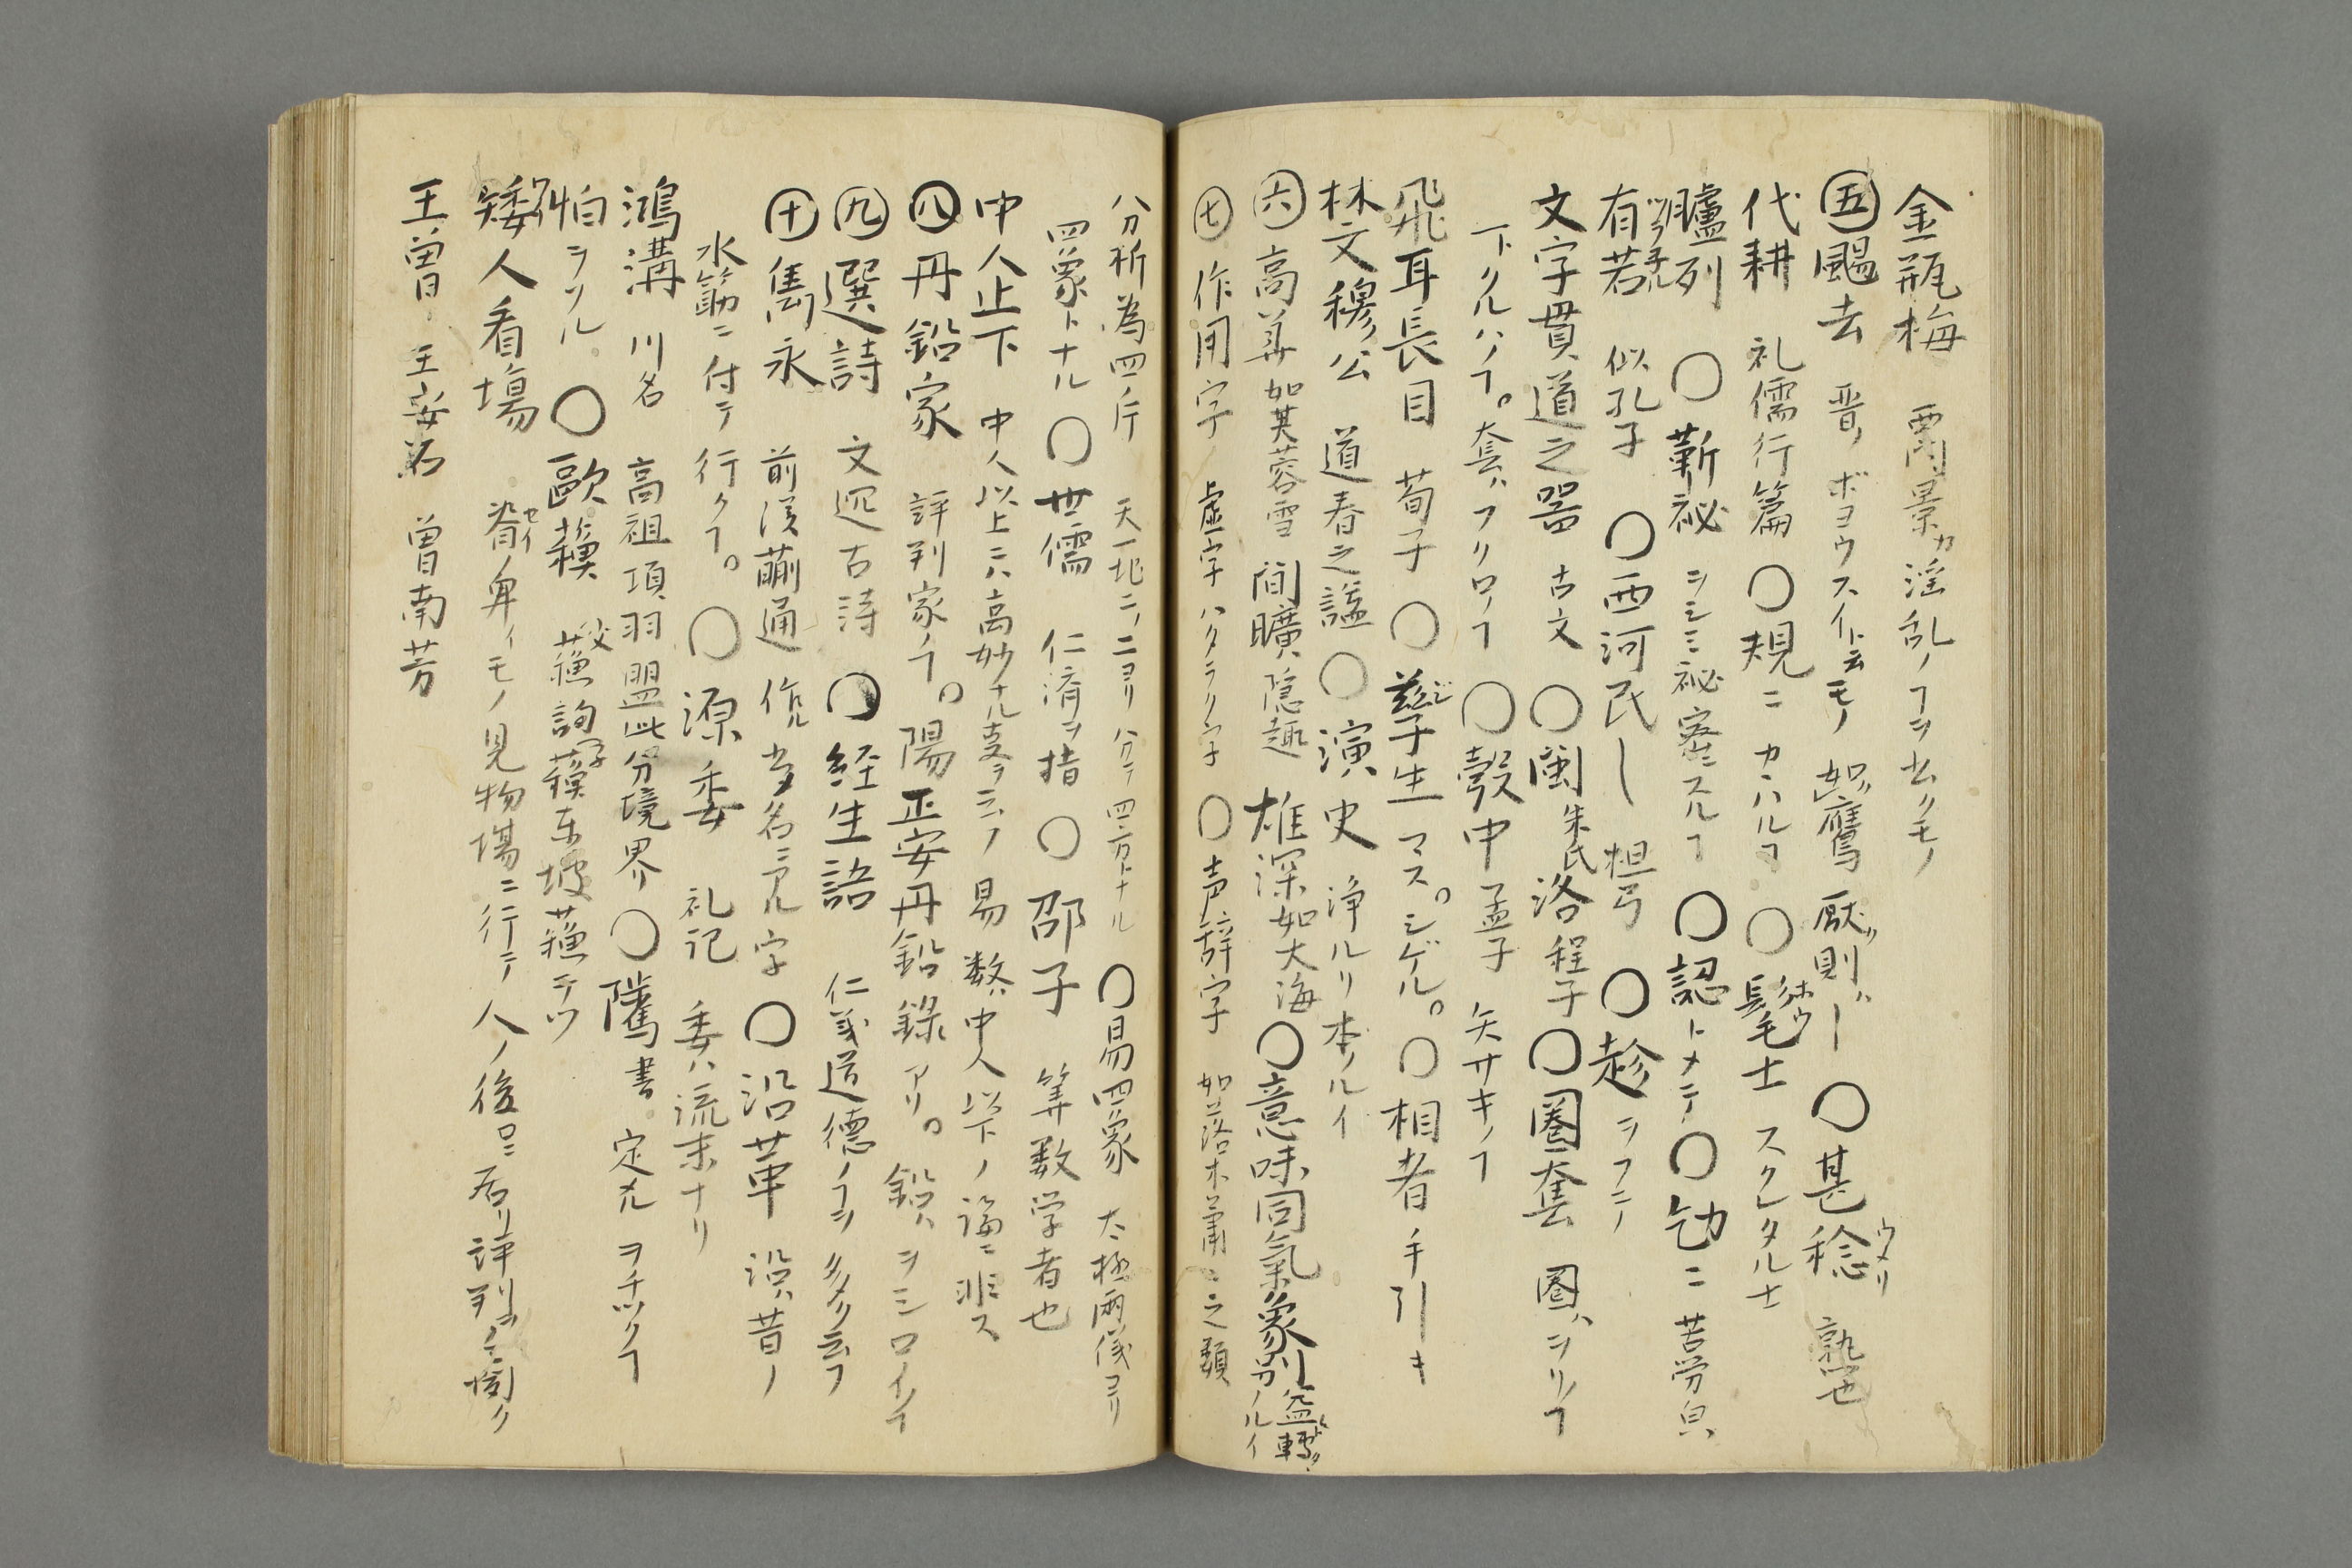 金瓶梅 西門景カ淫乱ノヿヲ厶クモノ
㊄颺去 晋ノボヨウスイト云モノ 如鷹厭則ハ｜〇甚稔ウメリ 熟也
代耕 礼儒行篇〇規ニ カハルヿ〇髦ホウ士 スクレタル士
臚列ツラ子ル〇靳祕 ヲシミ祕密スルヿ〇認トメテ〇劬ニ 苦労皃
有若 似孔子〇西河民｜ 檀弓〇趁ヲフテ
文字貫道之器 古文〇閩朱氏洛程子〇圏套 圏ハヲリノヿ
下タルハノヿ。套ハフクロノヿ〇彀中 孟子 矢サキノヿ
飛耳長目 荀子〇玆ジ子生 マス。シゲル。〇相者 手引キ
林文穆公 道春之諡〇演史 浄ルリ本ノルイ
㊅高華如芙蓉雪 間曠隠趣 雄深如大海〇意味同氣象別
㊆作用字 虚字ハタラク字〇声辞字 如落木蕭ミ之類
八分析為四片 天一地二ノ二ヨリ分テ四方トナル〇易四象 太極両儀ヨリ
四象トナル〇世儒 仁斎ヲ指〇邵子 算数学者也
中人止下 中人以上ニハ高妙ナル事ヲ云ノ 易数ハ中人以下ノ論ニ非ス
㊇丹鉛家 評判家ノヿ。陽正安丹鉛錄アリ。鉛ハヲシロイノヿ
㊈選詩 文選古詩〇経生語 仁義道徳ノヿヲ多ク云フ
㊉雋永 前漢蒯通作ル書名ニアル字〇沿革 沿ハ昔ノ
水筋ニ付テ行クヿ。〇源委 礼記 委ハ流末ナリ
鴻溝 川名 高祖項羽盟此分境界リ〇隲書 定ル ヲチツクヿ
怕ヲソル〇歐蘓 父蘓詢子蘓東坡蘓ラツ
矮ワイ人看場 脊セイノ卑イモノ見物場ニ行テ人ノ後ロニ居リ評判ノミ聞ク
王曽 王安石 曽南芳